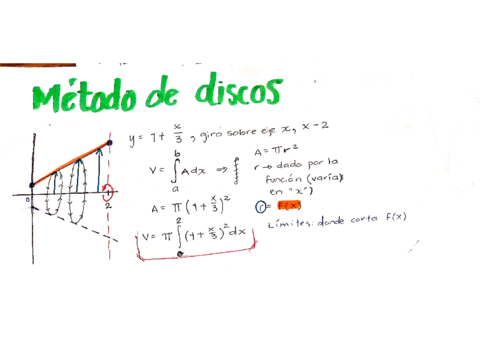 Método de discos
y = 1 + x/3, giro sobre eje x, x-2
V = ∫_a^b A dx ⇒
A = πr²
r → dado por la función (varía) en "x")
A = π (1 + x/3)²
r = F(x)
V = π ∫_0^2 (1 + x/3)² dx
Límites: donde corta F(x)
0
2